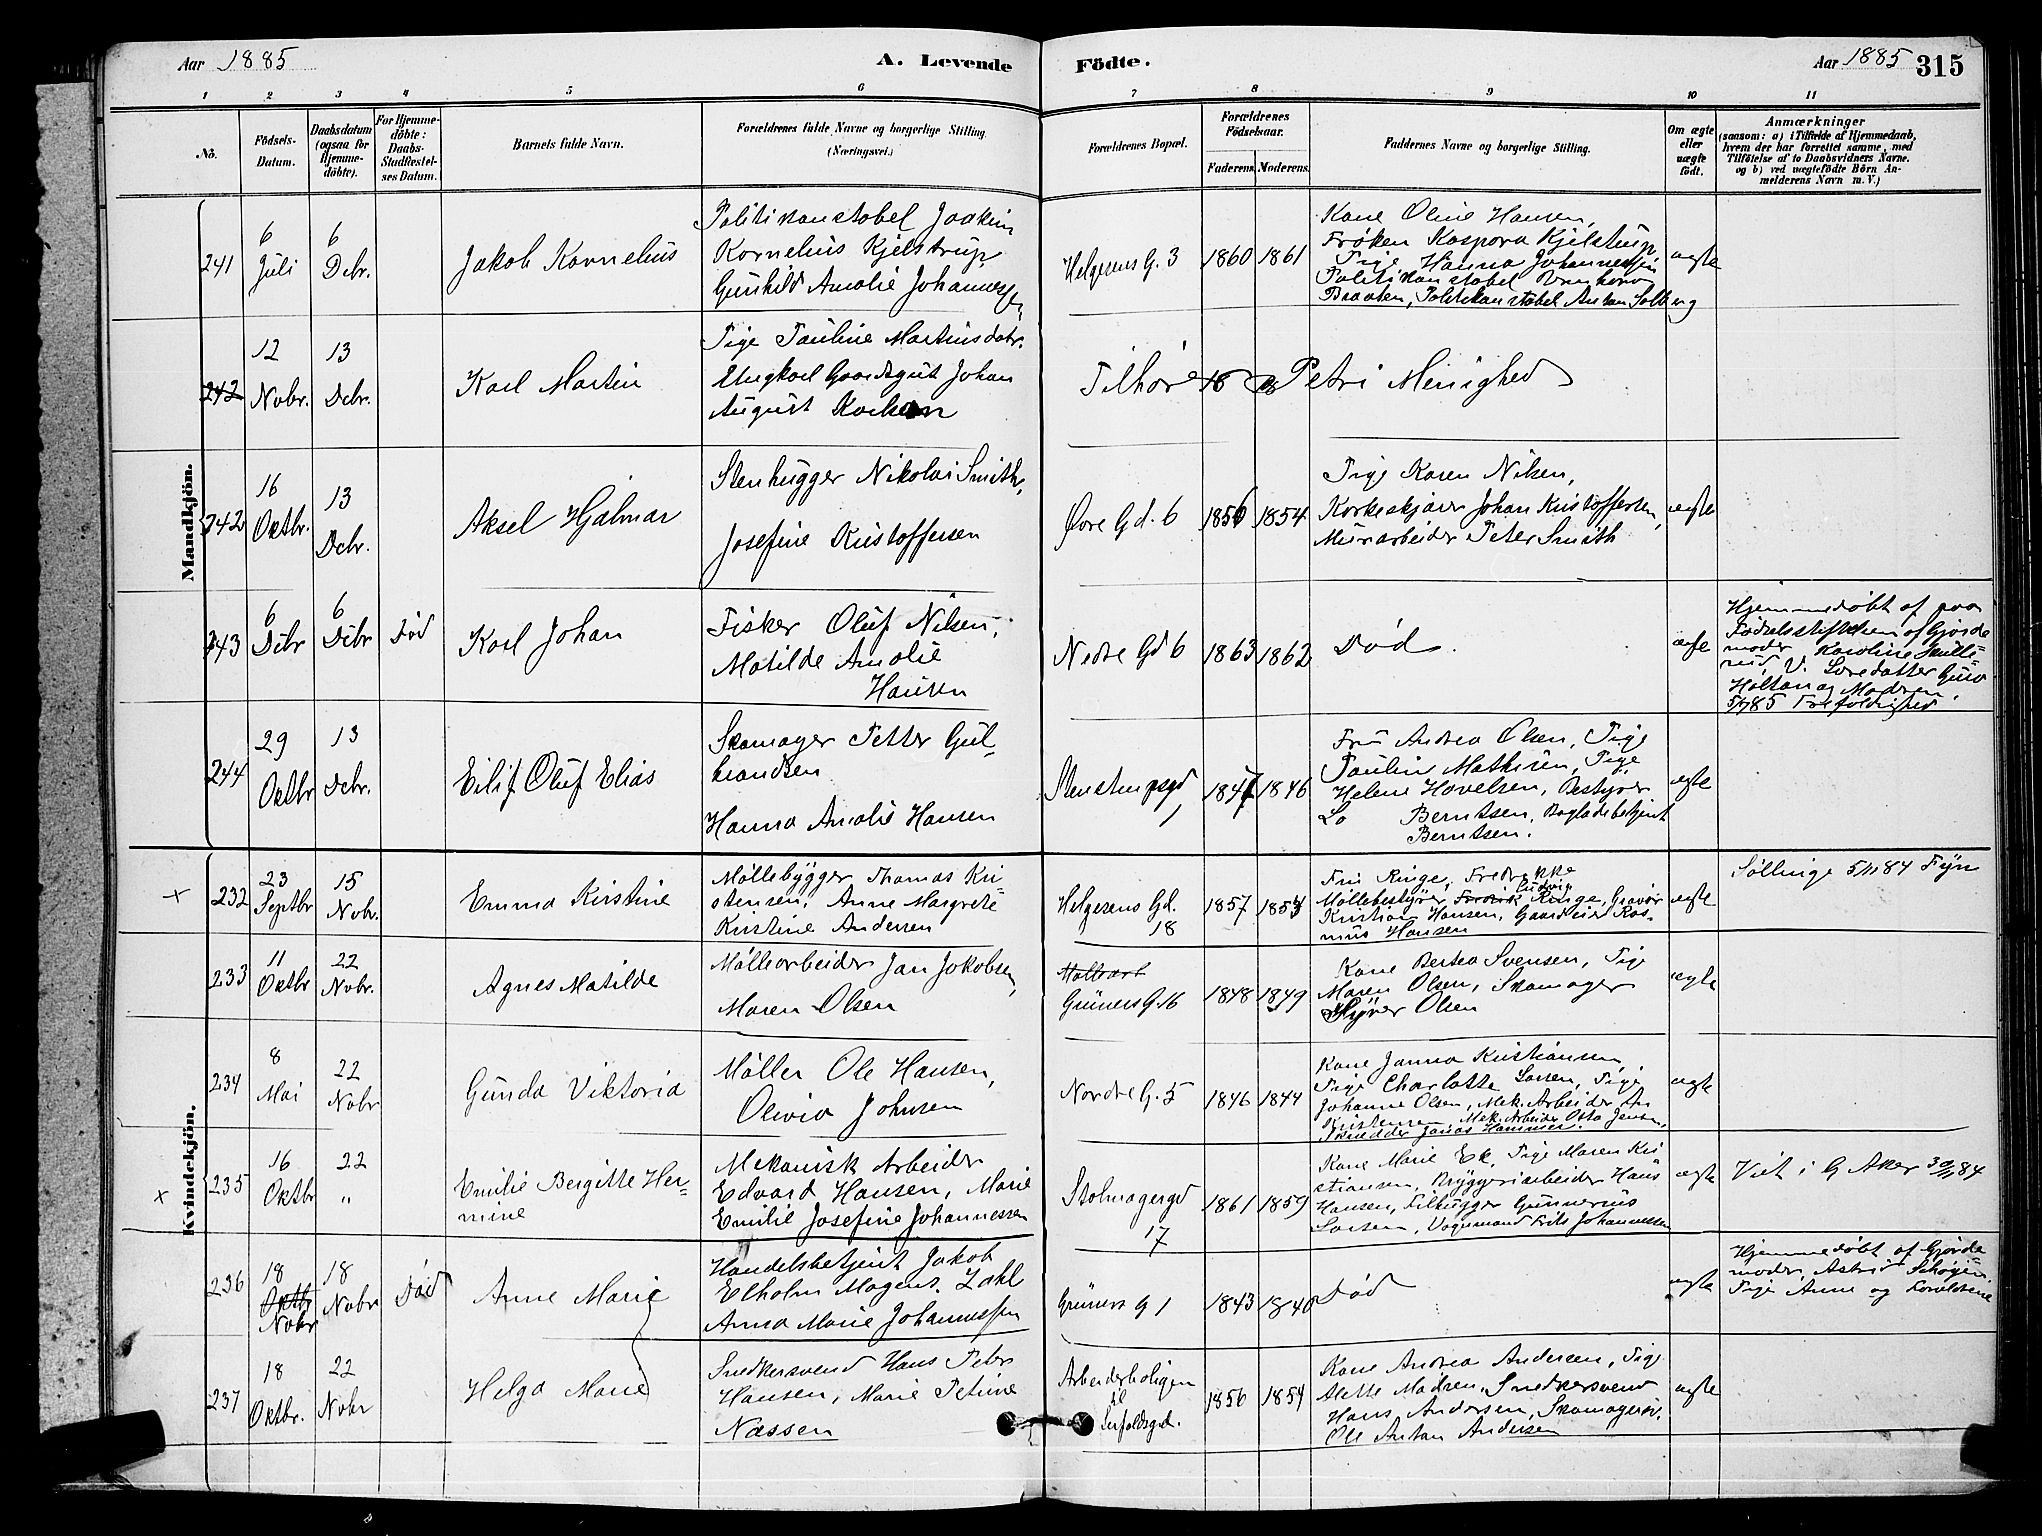 Aar 1885
A. Levende Födte.
Aar 1885
315
1 2 3 4 5 6 7 8 9 10 11
No.
Födsels-Datum.
Daabsdatum (ogsaa for Hjemme-döbte).
For Hjemme-döbte: Daabs-Stadfæstel-ses Datum.
Barnets fulde Navn.
Forældrenes fulde Navne og borgerlige Stilling. (Næringsvei.)
Forældrenes Bopæl.
Forældrenes Födselsaar.
Faderens. Moderens.
Faddernes Navne og borgerlige Stilling.
Om ægte eller uægte födt.
Anmærkninger
(saasom: a) i Tilfælde af Hjemmedaab, hvem der har forrettet samme, med Tilföielse af to Daabsvidners Navne. og b) ved uægtefödte Börn An-melderens Navn m. V.)
Mandkjön.
241
6 Juli
6 Debr.
Jakob Kornelius
Politikonstabel Joakim
Kornelius Kjelstrup,
Gunhild Amalie Johannessen
Helgesens G. 3
1860
1861
Kone Oline Hansen,
Frøken Kaspora Kjelstrup,
Pige Hanna Johannessen
Politikonstabel
Braaten, Politikonstabel Anton Solberg
ægte
242
12 Nobr.
13 Debr.
Karl Martin
Pige Pauline Martinsdatr.
Ungkarl Gaardsgut Johan
August
Tilhører Petri Menighed
242
16 Oktbr.
13 Debr.
Aksel Hjalmar
Stenhugger Nikolai Smith,
Josefine Kristoffersen
Øvre Gd. 6
1856
1854
Pige Karen Nilsen,
Korkeskjærer Johan Kristoffersen,
Murarbeider Peter Smith
ægte
243
6 Debr
6 Debr
Død
Karl Johan
Fisker Oluf Nilsen,
Matilde Amalie
Hansen
Nedre Gd 6
1863
1862
Død.
ægte
Hjemmedøbt af paa
Fødselsstiftelsen af Gjorde
moder Karoline
Holtan og Madsen.
Trefoldighed
244
29 Oktbr
13 Debr.
Eilif Oluf Elias
Skomager Petter Gul-
brandsen
Hanna Amalie Hansen
Stenstrupsgd
1847
1846
Fru Andrea Olsen, Pige
Paulin Mathisen, Pige
Helene Hovelsen, Bestyrer
Berntsen, Bogladebetjent
Berntsen.
ægte
Kvindekjön.
x
232
23 Septbr
15 Nobr.
Emma Kirstine
Møllebygger Thomas Kri
stensen, Anne Margrete
Kristine Andersen
Helgesens Gd.
18
1857
1853
Fru Ringe, Fredrekke
Møllebestyrer Fredrik Ludvig Ringe, Gravør
Kristian Hansen, Gaardeier Ras-
mus Hansen
ægte
Søllinge 5/11 84 Fyn
233
11 Oktbr
22 Nobr.
Agnes Matilde
Møllearbeider Jan Jakobsen,
Maren Olsen
Møllearb
Grüners G. 16
1848
1849
Kone Bertea Svensen, Pige
Maren Olsen, Skomager
Syver Olsen
ægte
234
8 Mai
22 Nobr
Gunda Viktoria
Møller Ole Hansen,
Olivia Johnsen
Nordre G. 5
1846
1844
Kone Janna Kristiansen,
Pige Charlotte Larsen, Pige
Johanne Olsen, Mek. Arbeider An
Kristensen, Mek. Arbeider Otto Jensen,
Skrædder Jonas Hammer.
ægte
x
235
16 Oktbr
22 "
Emilie Bergitte Her-
mine
Mekanisk Arbeider
Edvard Hansen, Marie
Emilie Josefine Johannessen
Stolmagergd
17
1861
1859
Kone Marie Ek, Pige Maren Kri
stiansen, Bryggeriarbeider Hans
Hansen, Filhugger Gunnerius
Larsen, Vognmand Frits Johannessen
ægte
Viet i G Aker 30/11 84
236
18 Oktbr Nobr
18 Nobr
Død
Anne Marie
Handelsbetjent Jakob
Elholm Mogens. Zahl
Anna Marie Johannessen
Grüners G 1
1843
1840
Død
ægte
Hjemmedøbt af Gjorde
moder, Astrid
Pige Anne og Forældrene
237
18 Oktbr.
22 Nobr
Helga Marie
Snedkersvend Hans Peter
Hansen, Marie Petrine
Næssen
Arbeiderboligen
til
1856
1854
Kone Andrea Andersen, Pige
Alette Madsen, Snedkersvend
Hans Andersen, Skomagersv.
Ole Anton Andersen
ægte